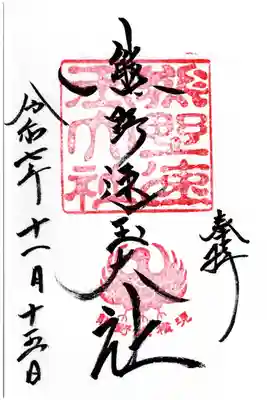 奉拝
熊野速玉大社
令和七年十一月十五日
熊野速
玉大社